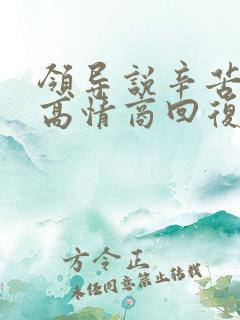 領导説辛苦
高情商回復
方令正
未经同意禁止转载